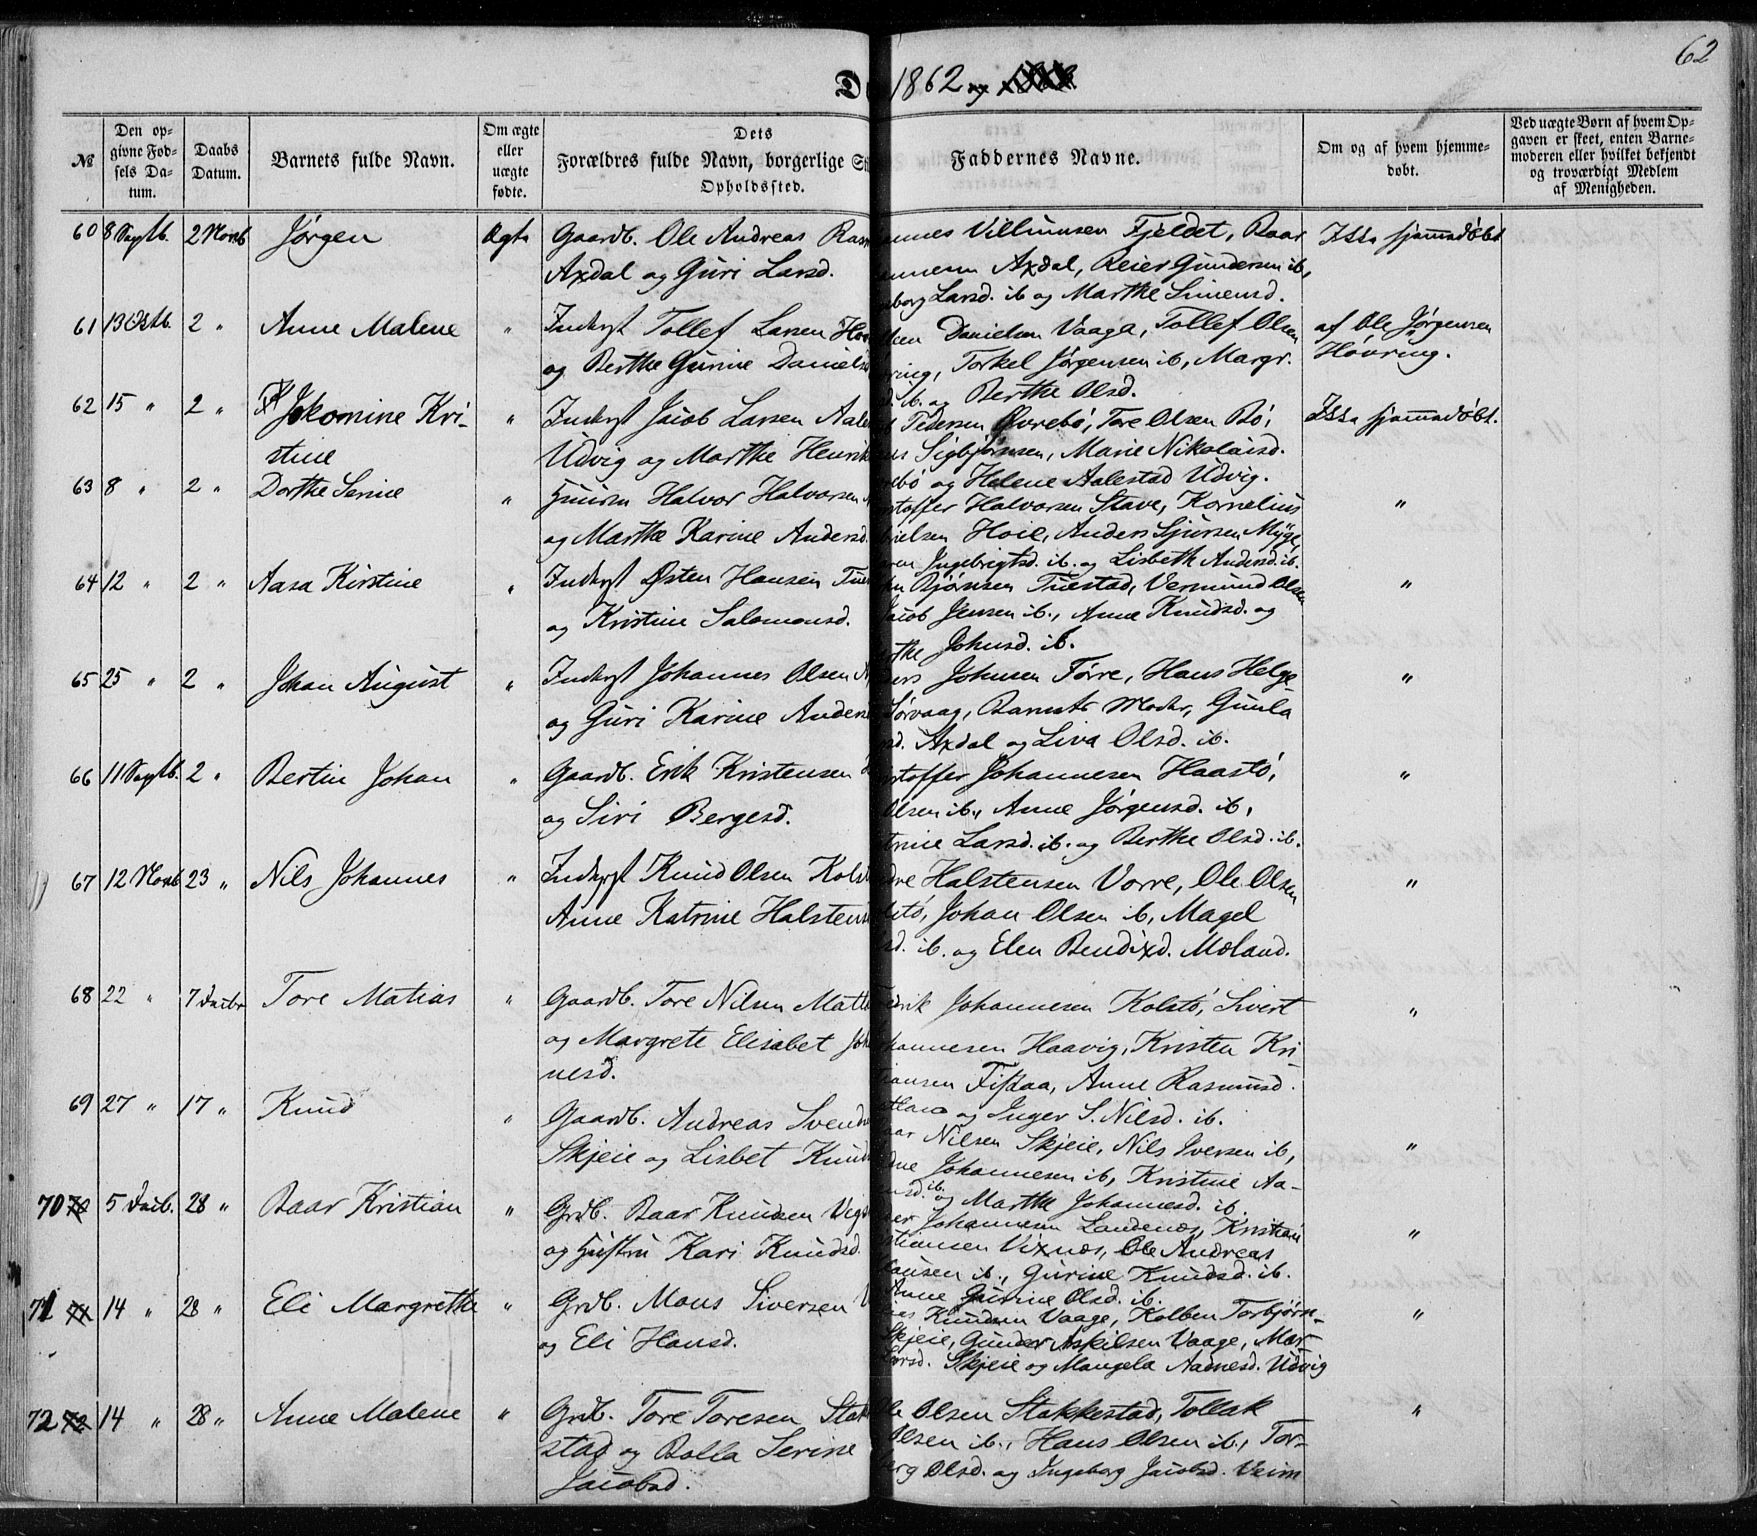 62
1862 og
№
Den opgivne Fødsels Datum.
Daabs Datum.
Barnets fulde Navn.
Om ægte eller uægte fødte.
Dets Forældres fulde Navn, borgerlige
Opholdssted.
Faddernes Navne.
Om og af hvem hjemmedøbt.
Ved uægte Børn af hvem Opgaven er skeet, enten Barnemoderen eller hvilket bekjendt og troværdigt Medlem af Menigheden.
60 8 Septb. 2 Novb Jørgen Ægte Gaardb. Ole Andreas Ras
Axdal og Guri Larsd.
annes Villumsen Fjeldet, Baar
Axdal, Reier Gundersen ib,
borg Larsd. ib og Marthe Simensd.
Ikke hjemmedøbt
61 13 Octb. 2 " Anne Malene " Inderst Tollef Larsen
og Berthe Gurine Daniels
Danielsen Vaage, Tollef Olsen
ring, Torkel Jørgensen ib, Margr.
d. ib. og Berthe Olsd.
af Ole Jørgensen
Høvring.
62 15 " 2 " Jokomine Kri-
stine
" Inderst Jacob Larsen Aale
Udvig og Marthe Henrik
Pedersen Øvrebø, Tore Olsen Bø,
Sigbjørnsen, Marie Nikolaisd.
rebø og Helene Aalestad Udvig.
Ikke hjemmedøbt.
63 8 " 2 " Dorthe Serine " Huusm Halvor Halvorsen
og Marthe Karine Andersd.
stoffer Halvorsen Stave, Kornelius
nielsen Hoie, Anders Sjursen Myge,
ren Ingebrigtsd. ib. og Lisbeth Andersd. ib.
"
64 12 " 2 " Aasa Kirstine " Inderst Østen Hansen Tue
og Kristine Salomonsd.
Bjørnsen Tuestad, Vermund Olsen
Jacob Jensen ib., Anne Knudsd. og
the Johnsd. ib.
"
65 25 " 2 " Johan August " Inderst Johannes Olsen
og Guri Karine Anders
ers Johnsen Førre, Hans Helge
Sørvaag, Barnets Moder, Gunla
sd. Axdal og Liva Olsd. ib.
"
66 11 Septb. 2 " Bertin Johan " Gaardb. Erik Kristensen
og Siri Bergesd.
stoffer Johannesen Haastø,
Olsen ib., Anne Jørgensd. ib,
trine Larsd. ib. og Berthe Olsd. ib.
"
67 12 Novb 23 " Nils Johannes " Inderst Knud Olsen Kols
Anne Katrine Halstens
dre Halstensen Vorre, Ole Olsen
lstø, Johan Olsen ib, Magel
sd. ib. og Elen Bendixd. Moland.
"
68 22 " 7 Decbr Tore Matias " Gaardb. Tore Nilsen Matl
og Margrete Elisabet Joh
nesd.
edrik Johannesen Kolstø, Sivert
hannesen Haavig, Kristen Kri
tiansen Fiskaa, Anne Rasmusd.
atland og Inger S. Nilsd. ib.
"
69 27 " 17 " Knud " Gaardb. Andreas Svends
Skjeie og Lisbet Knud
aar Nilsen Skjeie, Nils Iversen ib,
dne Johannesen ib, Kristine Aa-
nsd. ib. og Marthe Johannesd. ib.
"
70 5 Decb. 28 " Baar Kristian " Grdb. Baar Knudsen Vigs
og Hustru Kari Knudsd.
er Johannesen Landenæs, Kristian
stiansen Vixnæs, Ole Andreas
lausen ib., Gurine Knudsd. ib.
Anne Gurine Olsd. ib.
"
71 14 " 28 " Eli Margrethe " Grdb. Mons Siversen
og Eli Hansd.
Knudsen Vaage, Kolben Torbjørn-
Skjeie, Gunder Askilsen Vaage, Mar-
Larsd. Skjeie og Mangela Aadnesd. Udvig
"
72 14 " 28 " Anne Malene " Grdb. Tore Toresen Stak
stad og Bolla Serine
Jacobsd.
le Olsen Stakkestad, Tollak
Olsen ib., Hans Olsen ib., Tor-
erg Olsd. og Ingeborg Jacobsd. Veim
"